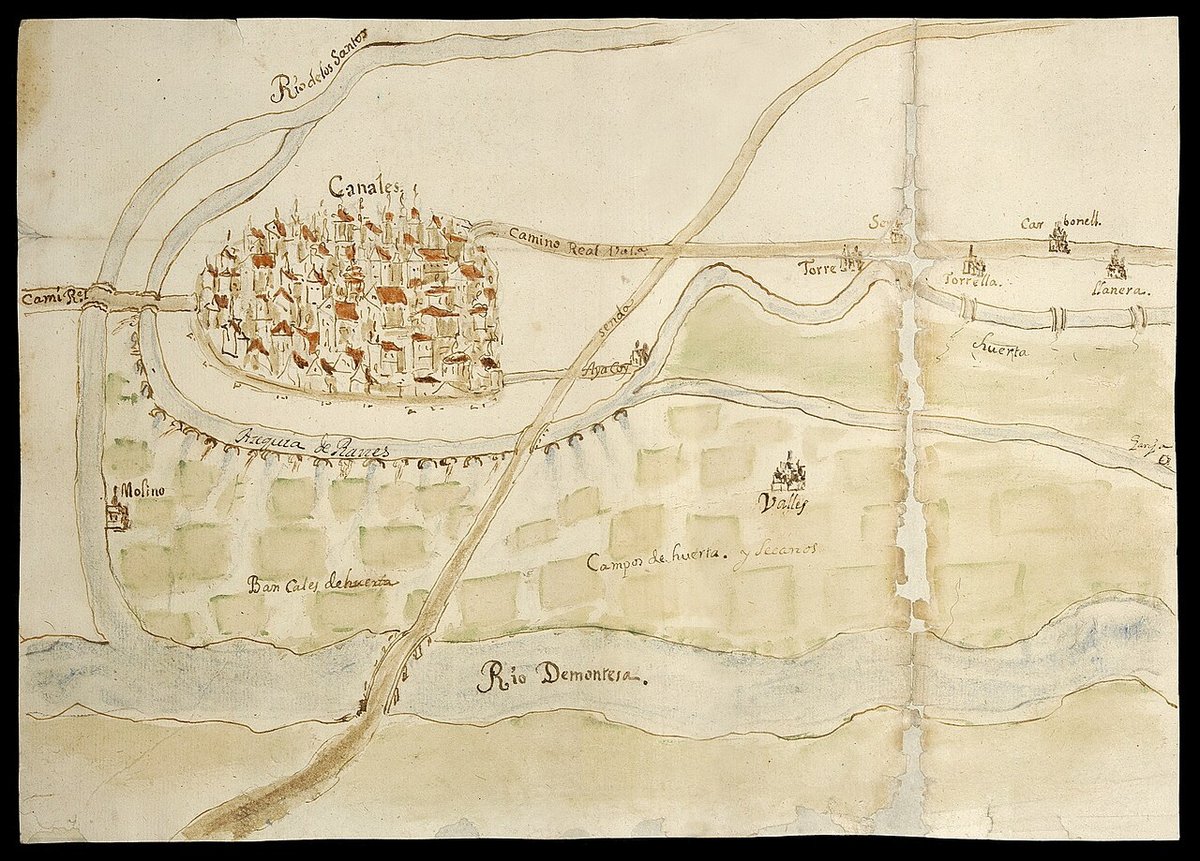 Rio de los Santos
Canales.
Camino Real
Car bonell.
Torre
Torrella.
Llanera.
Cami Rl
sendo
huerta
Ayacor
de Ranes
Molino
Valles
Campos de huerta. y secanos
Ban Cales de huerta
Rio Demontesa.